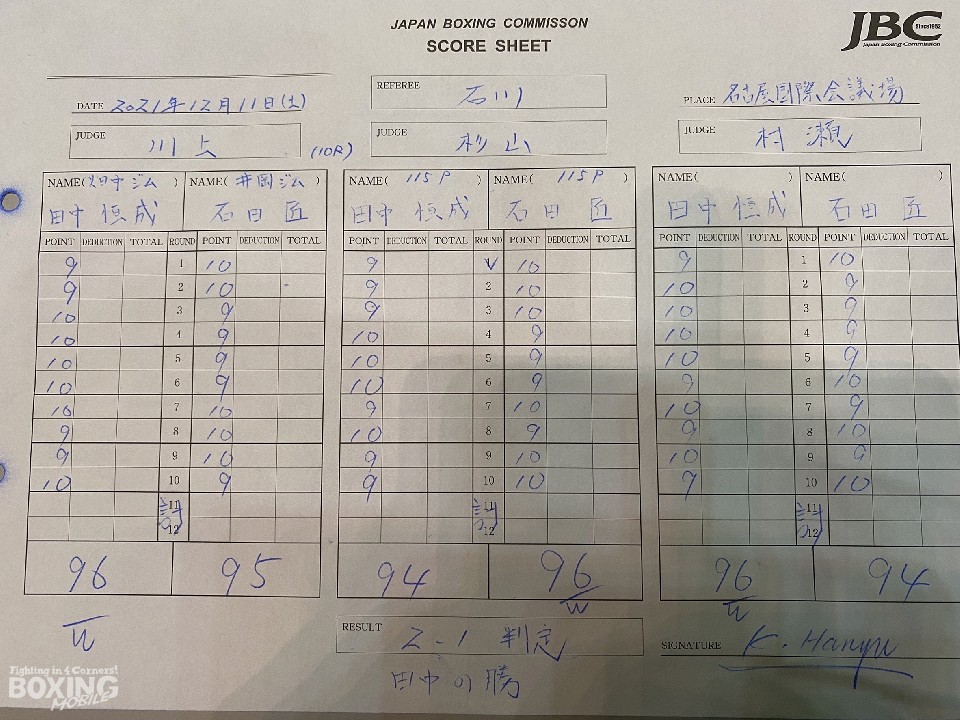 JAPAN BOXING COMMISSON
SCORE SHEET
JBC
Since1952
Japan Boxing Commission
DATE 2021年12月11日(土)
REFEREE 石川
PLACE 名古屋國際会議場
JUDGE 川上 (10R)
JUDGE 杉山
JUDGE 村瀬
NAME(畑中ジム ) NAME(井岡ジム ) NAME( 115P ) NAME( 115P ) NAME( ) NAME( )
田中 恒成 石田 匠 田中 恒成 石田 匠 田中 恒成 石田 匠
POINT DEDUCTION TOTAL ROUND POINT DEDUCTION TOTAL POINT DEDUCTION TOTAL ROUND POINT DEDUCTION TOTAL POINT DEDUCTION TOTAL ROUND POINT DEDUCTION TOTAL
9 1 10 9 10 9 1 10
9 2 10 9 2 10 10 2 9
10 3 9 9 3 10 10 3 9
10 4 9 10 4 9 10 4 9
10 5 9 10 5 9 10 5 9
10 6 9 10 6 9 9 6 10
10 7 10 9 7 10 10 7 9
9 8 10 10 8 9 9 8 10
9 9 10 9 9 10 10 9 9
10 10 9 9 10 10 9 10 10
11 11 11
12 12 12
96 95 94 96 96 94
W W W
RESULT 2-1 判定
田中の勝
SIGNATURE K. Hanyu
Fighting in 4 Corners!
BOXING
MOBILE